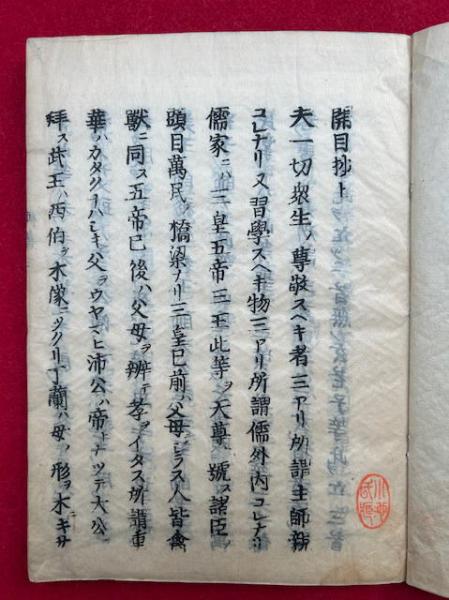 開目抄上
夫一切衆生ノ尊敬スヘキ者三アリ所謂主師親
コレナリ又習學スヘキ物三アリ所謂儒外内コレナリ
儒家ニハ三皇五帝三王此等ヲ天尊ト號ス諸臣ノ
頭目萬民ノ橋梁ナリ三皇已前ハ父母ヲシラス人皆禽
獣ニ同ス五帝已後ハ父母ヲ辨テ孝ヲイタス所謂重
華ハカタクナハシキ父ヲウヤマヒ沛公ハ帝トナツテ大公ヲ
拜ス武王ハ西伯ヲ木像ニツクリ丁蘭ハ母ノ形ヲ木ニキサ